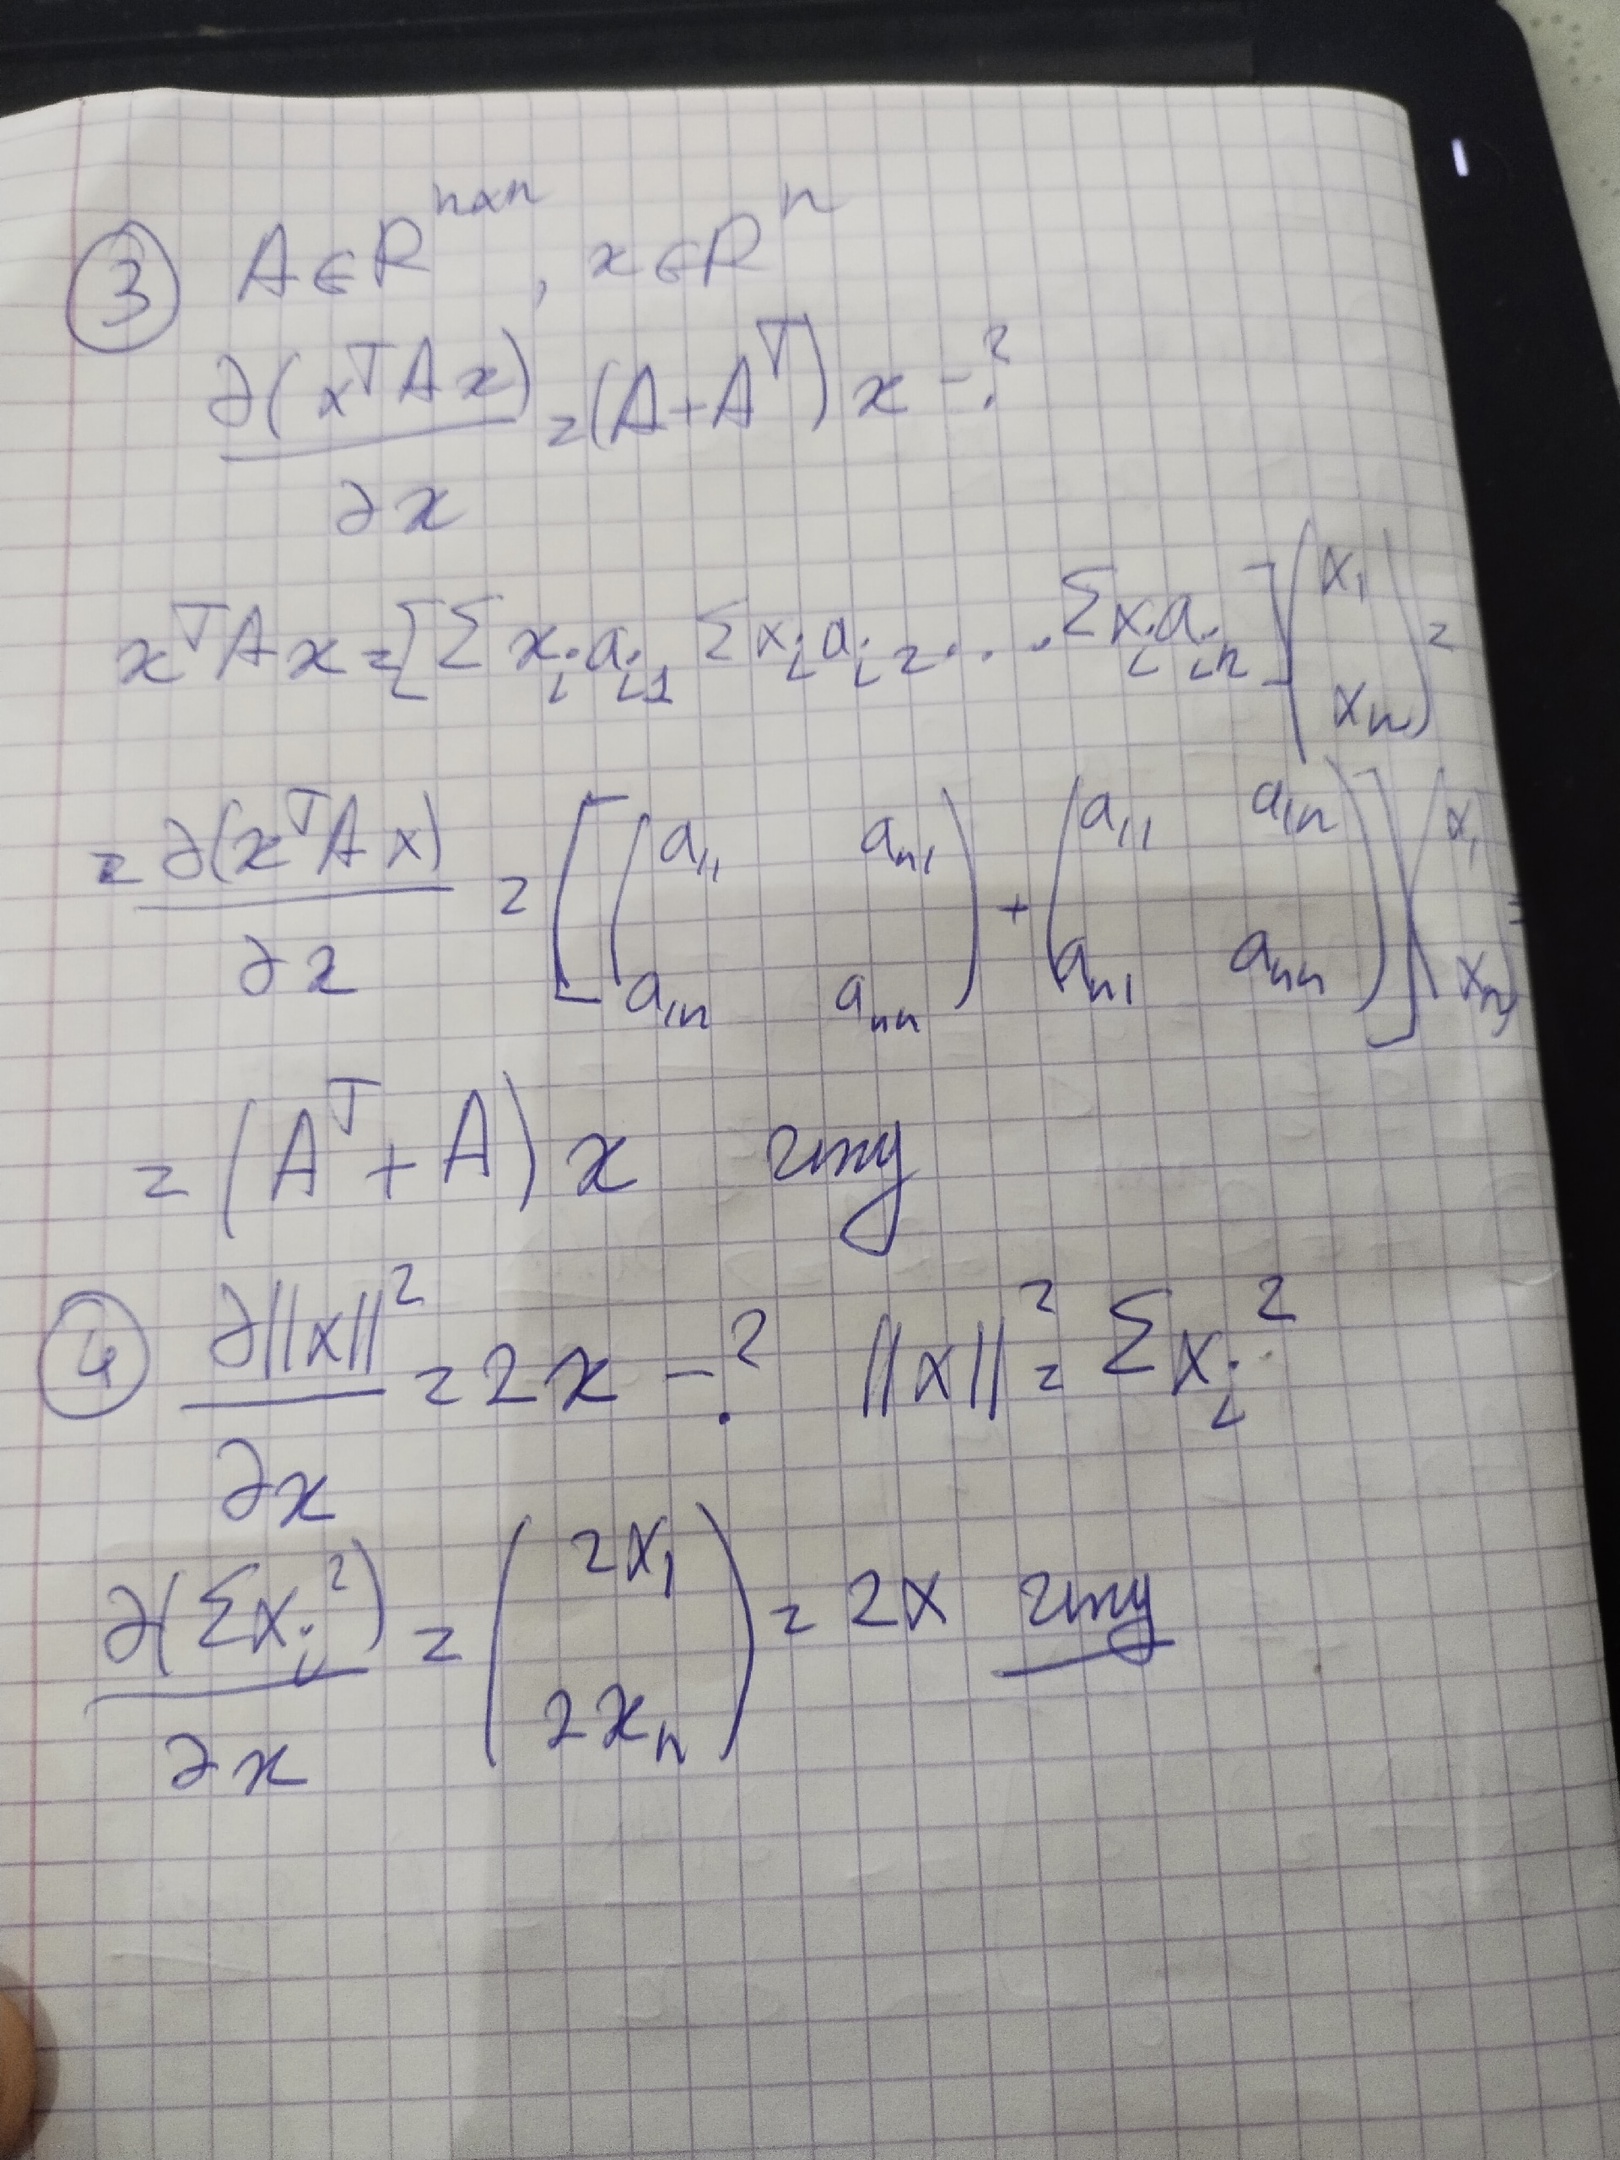 ③ A∈R^{n×n}, x∈R^n
∂(x^T A x)/∂x = (A+A^T)x - ?
x^T A x = [Σx_i a_{i1} Σx_i a_{i2} .... Σx_i a_{in}] (x_1 x_n) =
= ∂(x^T A x)/∂x = [(a_{11} a_{n1} a_{1n} a_{nn}) + (a_{11} a_{1n} a_{n1} a_{nn})] (x_1 x_n) =
= (A^T + A) x
④ ∂||x||^2/∂x = 2x - ? ||x||^2 = Σx_i^2
∂(Σx_i^2)/∂x = (2x_1 2x_n) = 2x